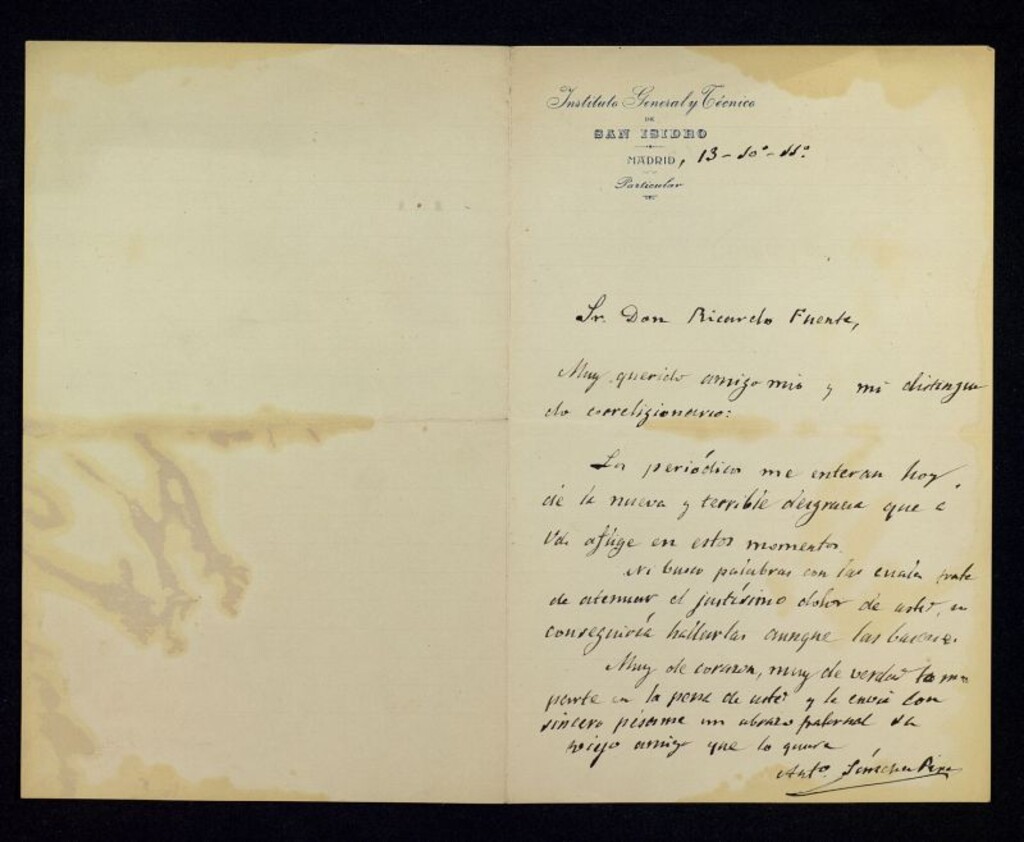 Instituto General y Técnico
DE
SAN ISIDRO
MADRID, 13-10º-11º
Particular
Sr. Don Ricardo Fuente,
Muy querido amigo mio y mi distingui
do correligionario:
Los periódicos me enteran hoy,
de la nueva y terrible desgracia que á
Vd. aflige en estos momentos.
Ni busco palabras con las cuales trate
de atenuar el justísimo dolor de usted, ni
conseguiría hallarlas aunque las buscase.
Muy de corazon, muy de verdad tomo
parte en la pena de usted y le envia con
sincero pésame un abrazo fraternal su
viejo amigo que lo quiere
Antº. Sánchez